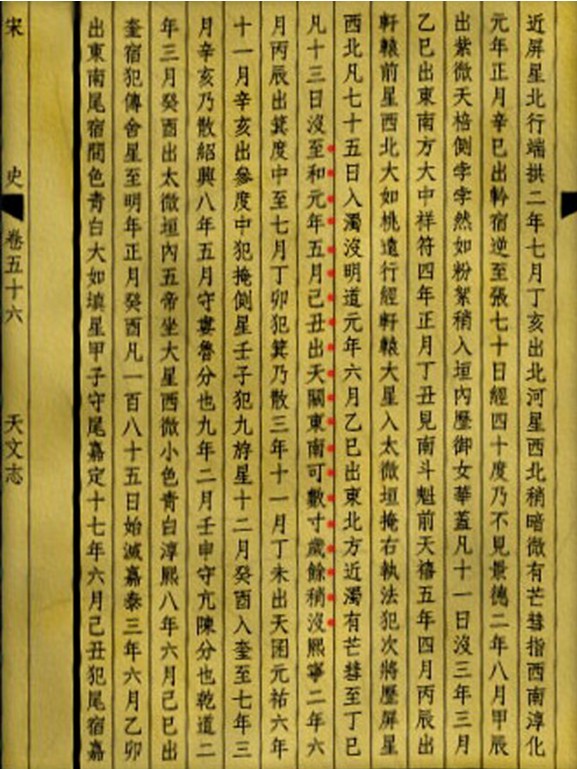 近屏星北行端拱二年七月丁亥出北河星西北稍暗微有芒彗指西南淳化
元年正月辛巳出軫宿逆至張七十日經四十度乃不見景德二年八月甲辰
出紫微天棓側孛孛然如粉絮稍入垣內歷御女華蓋凡十一日沒三年三月
乙巳出東南方大中祥符四年正月丁丑見南斗魁前天禧五年四月丙辰出
軒轅前星西北大如桃速行經軒轅大星入太微垣掩右執法犯次將歷屏星
西北凡七十五日入濁沒明道元年六月乙巳出東北方近濁有芒彗至丁巳
凡十三日沒至和元年五月己丑出天關東南可數寸歲餘稍沒熙寧二年六
月丙辰出箕度中至七月丁卯犯箕乃散三年十一月丁未出天囷元祐六年
十一月辛亥出參度中犯掩側星壬子犯九斿星十二月癸酉入奎至七年三
月辛亥乃散紹興八年五月守婁魯分也九年二月壬申守亢陳分也乾道二
年三月癸酉出太微垣內五帝坐大星西微小色青白淳熙八年六月己巳出
奎宿犯傳舍星至明年正月癸酉凡一百八十五日始滅嘉泰三年六月乙卯
出東南尾宿間色青白大如填星甲子守尾嘉定十七年六月己丑犯尾宿嘉
宋史 卷五十六 天文志